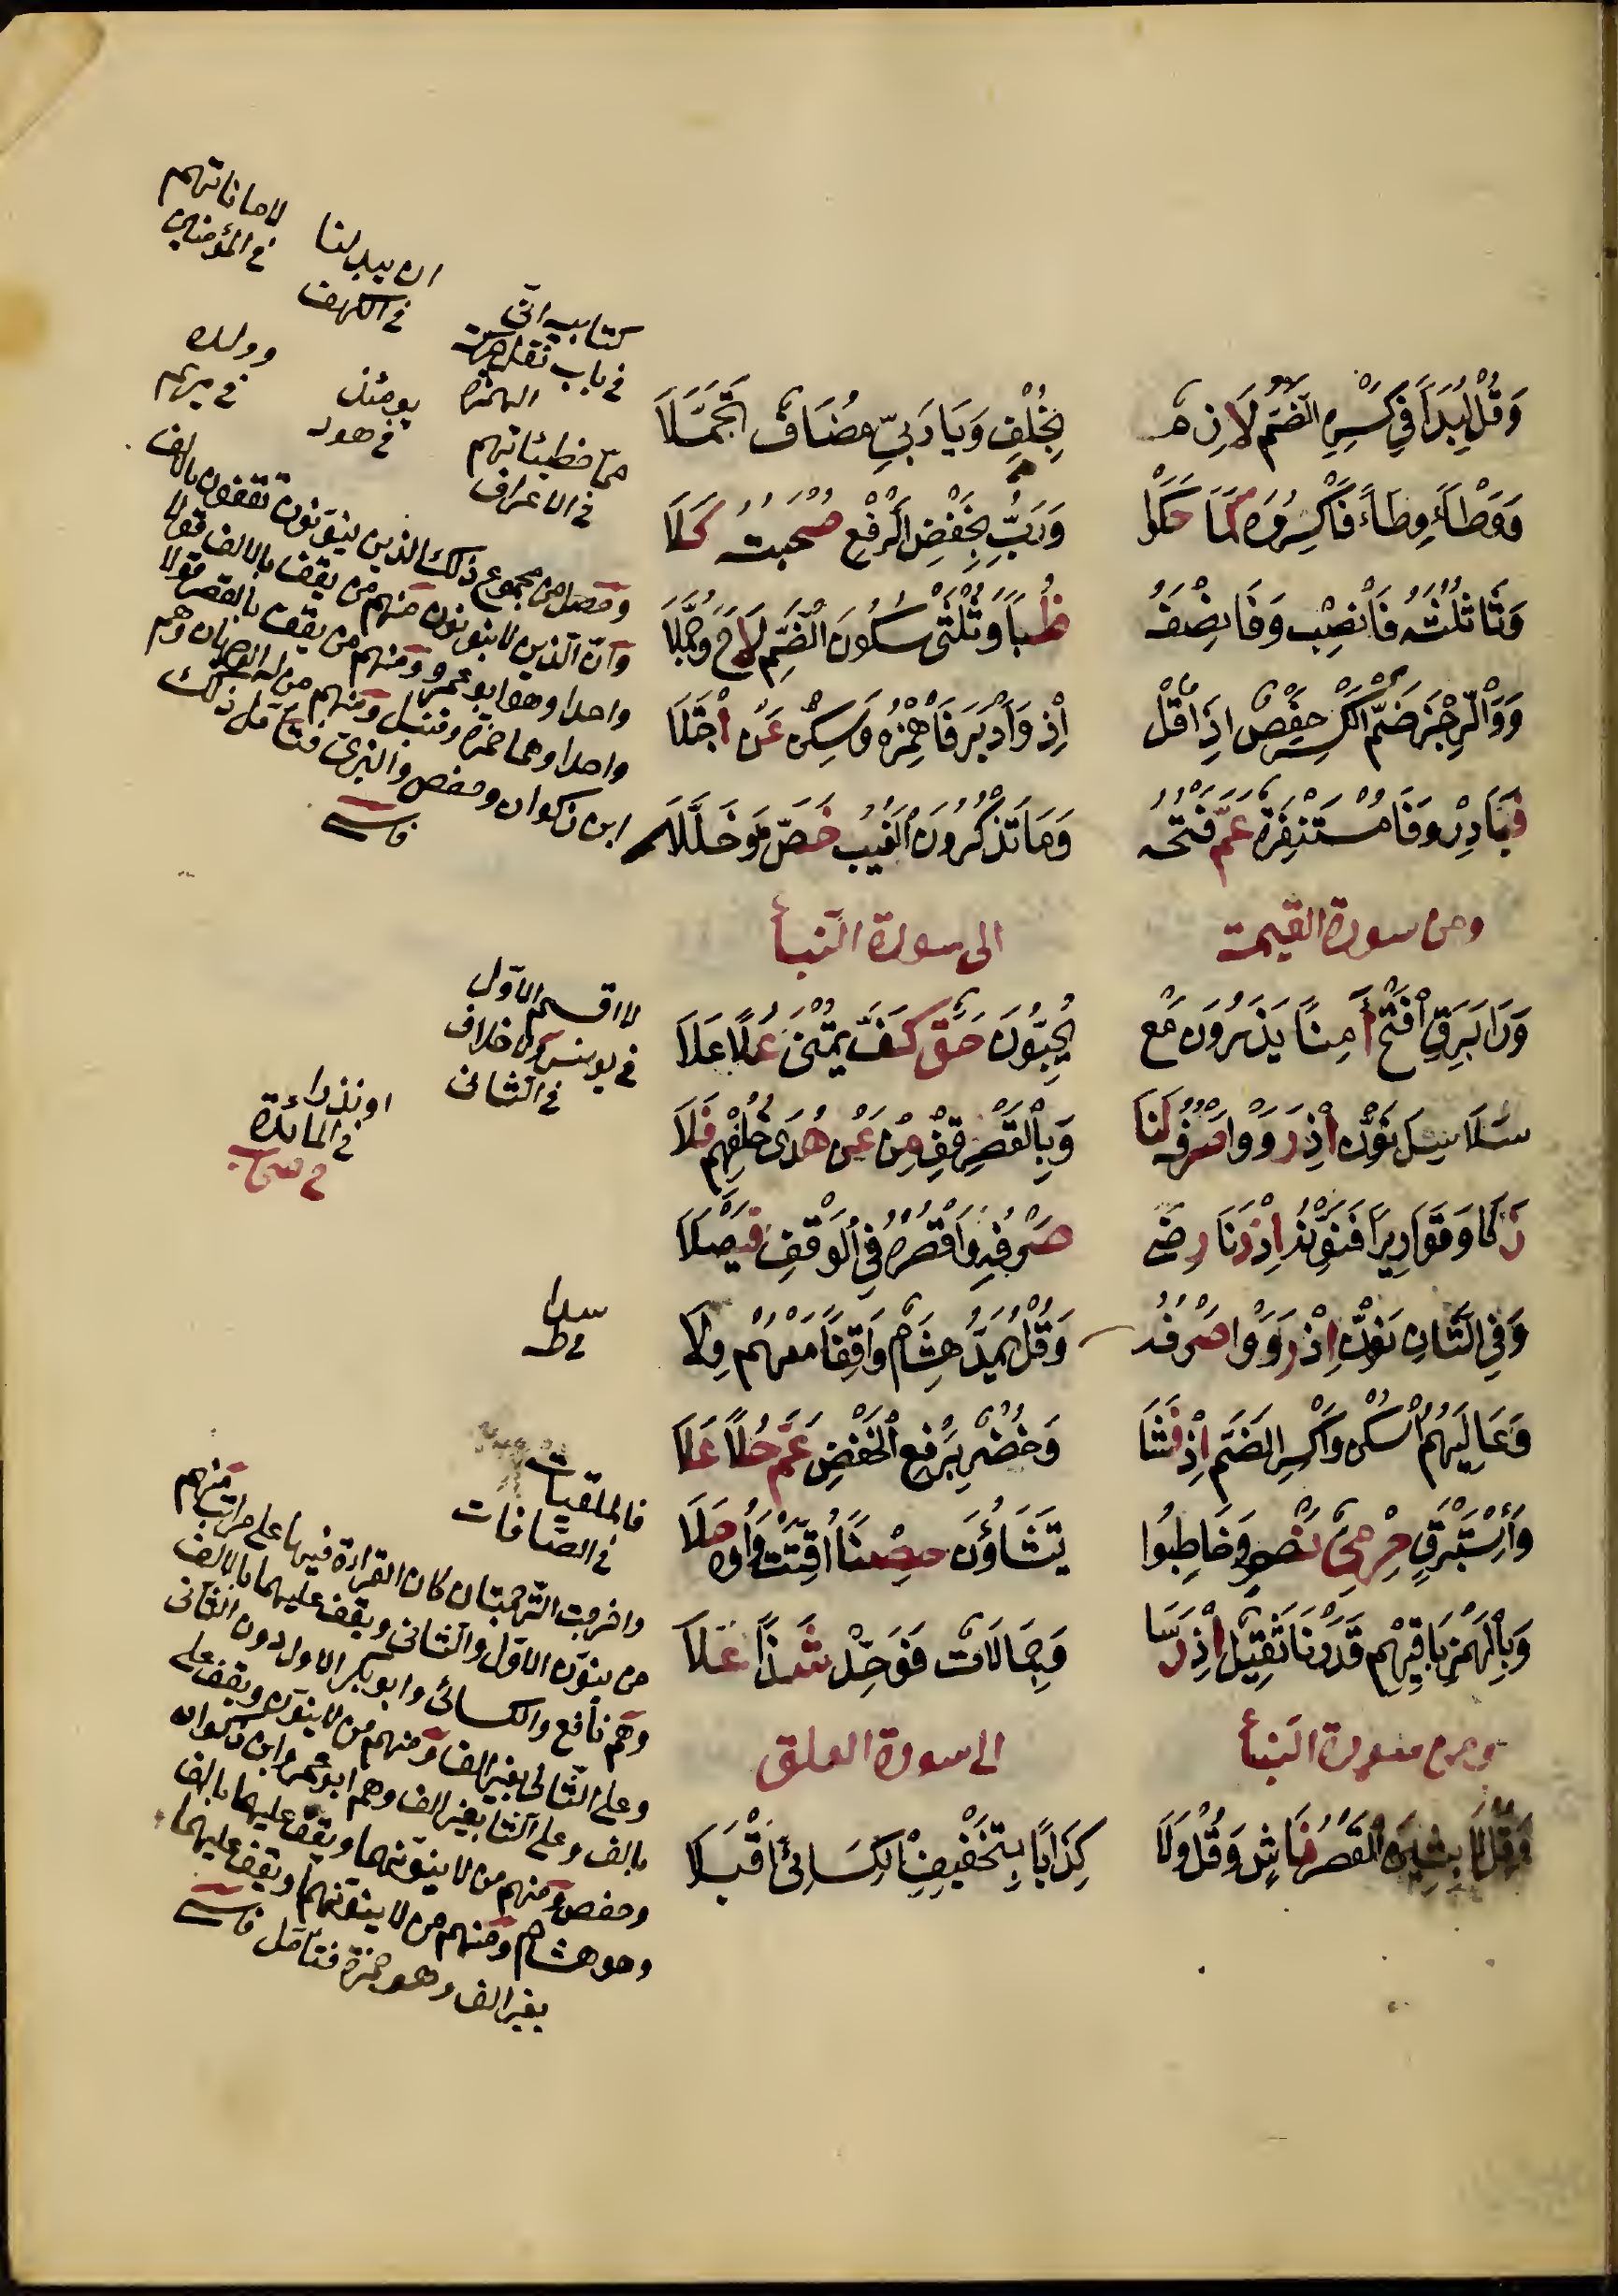 وَقُلْ لِبَدًا فِي كَسْرِهِ الضَّمُّ لَازِمٌ بِخُلْفٍ وَيَا رَبِّي مُضَافٌ تَجَمَّلَا
وَوَطْأً وِطَاءً فَاكْسِرُوهُ كَمَا حَكَوْا وَرَبُّ بِخَفْضِ الرَّفْعِ صُحْبَتُهُ كَلَا
وَثَا ثُلْثَهُ فَانْصِبْ وَفَا نِصْفَهُ ظُبًا وَثُلْثَيْ سُكُونُ الضَّمِّ لَاحَ وَجَمَّلَا
وَوَالرِّجْزَ ضَمَّ الْكَسْرَ حَفْصٌ اِذَا قُلْ اِذْ وَأَدْبَرَ فَاهْمِزْهُ وَسَكِّنْ عَنِ اجْتِلَا
فَبَادِرْ وَفَا مُسْتَنْفِرَةْ عَمَّ فَتْحُهُ وَمَا تَذْكُرُونَ الْغَيْبَ خَصَّ وَخَلَّلَا
ومن سورة القيمة الى سورة النبأ
وَرَا بَرِقَ افْتَحْ أٰمِنًا يَذَرُونَ مَعْ يُحِبُّونَ حَقٌّ كَفَّ يُمْنَى عُلًا عَلَا
سَلَاسِلَ نَوِّنْ اِذْ رَوَوْا صَرْفَهُ لَنَا وَبِالْقَصْرِ قِفْ مِنْ عَنْ هُدًى خُلْفُهُمْ فَلَا
زَكَا وَقَوَارِيرًا فَنَوِّنْهُ اِذْ دَنَا رِضَى صَرْفِهِ وَاقْصُرْهُ فِي الْوَقْفِ فَيْصَلَا
وَفِي الثَّانِ نَوِّنْ اِذْ رَوَوْا صَرْفَهُ وَقُلْ يَمُدُّ هِشَامٌ وَاقِفًا مَعْهُمْ وِلَا
وَعَالِيَهُمُ اسْكِنْ وَاكْسِرِ الضَّمَّ اِذْ فَشَا وَخُضْرٌ بِرَفْعِ الْخَفْضِ عَمَّ حُلًا عَلَا
وَاِسْتَبْرَقٍ حِرْمِيُّ نَصْرٍ وَخَاطِبُوا تَشَاؤُنَ حِصْنًا اُقِّتَتْ وَاوُهُ حَلَا
وَبِالْهَمْزِ بَاقِيهِمْ قَدَرْنَا ثَقِيلٌ اِذْ رَسَا وَجِمَالَاتٌ فَوَحِّدْ شَذًا عَلَا
ومن سورة النبأ الى سورة العلق
وَقُلْ لَا بِثِينَ الْقَصْرُ فَاشٍ وَقُلْ وَلَا كِذَابًا بِتَخْفِيفِ الْكِسَائِيِّ اَقْبَلَا
لاماناتهم
في المؤمنين
ان يبدلنا
في الكهف
كتابيه انى
في باب نقل حركة
الهمزة
وولده
في مريم
يومئذ
في هود
مما خطيئاتهم
في الاعراف
وحصل من مجموع ذلك الذين ينونون يقفون بالالف
وان الذين لا ينونون منهم من يقف بالالف قولا
واحدا وهو ابو عمرو ومنهم من يقف بالقصر قولا
واحدا وهما حمزة وقنبل ومنهم من له الوجهان وهم
ابن ذكوان وحفص والبزى فتأمل ذلك
لا اقسم الاول
في يونس
في الثانى
او نذرا
في المائدة
سدا
فالملقيات
في الصافات
واخرجت الترجمتان كان القراءة فيها على مراتب منهم
من ينون الاول والثانى ويقف عليهما بالالف
وهم نافع والكسائى وابو بكر الاول دون الثانى
وعلى الثانى بغير الف ومنهم من لا ينون ويقف على
بالف وعلى الثانى بغير الف وهم ابو عمرو وابن ذكوان
وحفص ومنهم من لا ينونهما ويقف عليهما بالف
وهو هشام ومنهم من لا ينونهما ويقف عليهما
بغير الف وهو حمزة فتأمل